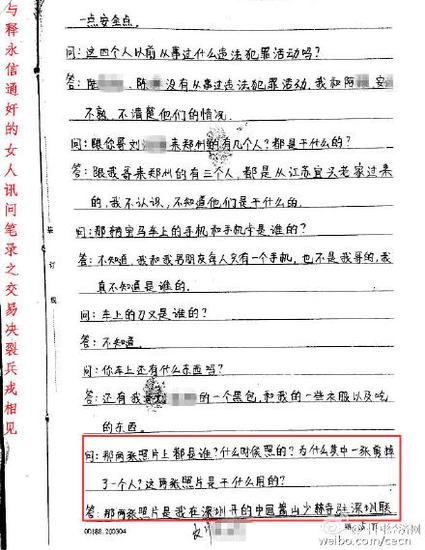 与释永信通奸的女人讯问笔录之交易决裂兵戎相见
一点安全点。
问：这四个人以前从事过什么违法犯罪活动吗？
答：陈 、陈 没有从事过违法犯罪活动，我和阿 、安
不熟，不清楚他们的情况
问：跟你哥刘 来郑州的有几个人？都是干什么的？
答：跟我哥来郑州的有三个人，都是从江苏宜兴老家过来
的，我不认识，不知道他们是干什么的。
问：那辆宝马车上的手机和手机卡是谁的？
答：不知道，我和我男朋友每人只有一个手机，也不是我哥的，我
真不知道是谁的。
问：车上的刀又是谁的？
答：不知道。
问：你车上还有什么东西吗？
答：还有我 的一个黑包，和我的一些衣服以及吃
的东西。
问：那两张照片上都是谁？什么时候照的？为什么其中一张剪掉
了一个人？这两张照片是干什么用的？
答：那两张照片是我在深圳开的中国嵩山少林寺驻深圳联
装订线
00188.200304
@中国经济网
weibo.com/cecn